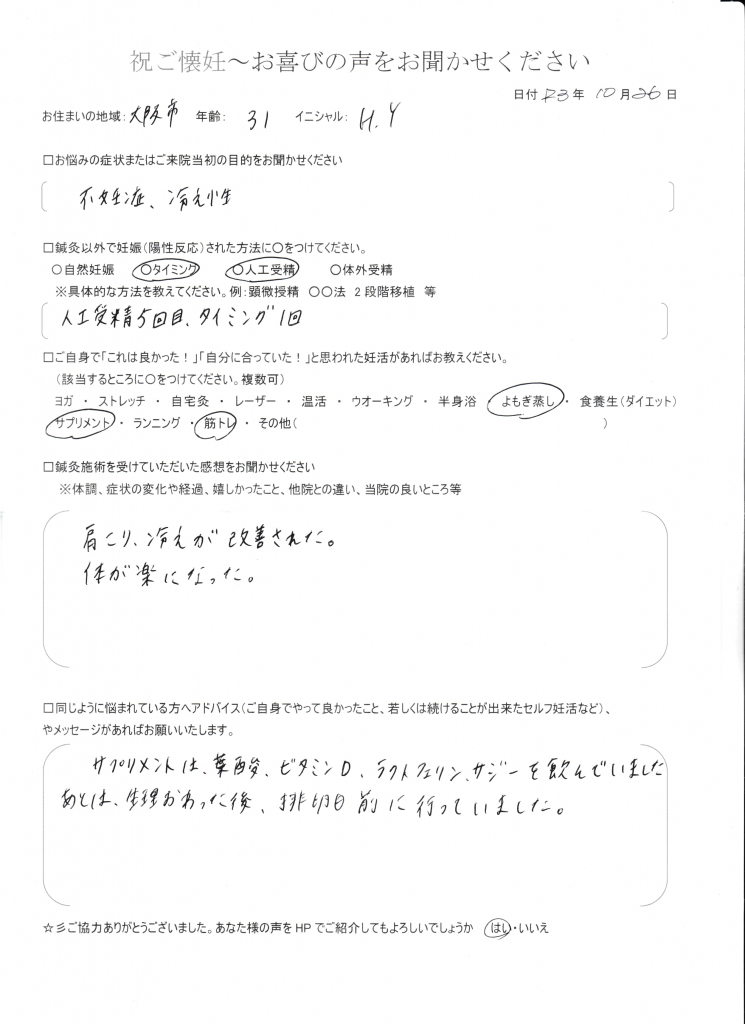 祝ご懐妊～お喜びの声をお聞かせください
日付 R3 年 10 月 26 日
お住まいの地域：大阪市 年齢： 31 イニシャル： H.Y
□お悩みの症状またはご来院当初の目的をお聞かせください
不妊症、冷え性
□鍼灸以外で妊娠（陽性反応）された方法に○をつけてください。
○自然妊娠 ○タイミング ○人工受精 ○体外受精
※具体的な方法を教えてください。例：顕微授精 ○○法 2段階移植 等
人工受精5回目、タイミング1回
□ご自身で「これは良かった！」「自分に合っていた！」と思われた妊活があればお教えください。
（該当するところに○をつけてください。複数可）
ヨガ ・ ストレッチ ・ 自宅灸 ・ レーザー ・ 温活 ・ ウオーキング ・ 半身浴 ・ よもぎ蒸し ・ 食養生（ダイエット）
サプリメント ・ ランニング ・ 筋トレ ・ その他（ ）
□鍼灸施術を受けていただいた感想をお聞かせください
※体調、症状の変化や経過、嬉しかったこと、他院との違い、当院の良いところ等
肩こり、冷えが改善された。
体が楽になった。
□同じように悩まれている方へアドバイス（ご自身でやって良かったこと、若しくは続けることが出来たセルフ妊活など）、
やメッセージがあればお願いいたします。
サプリメントは、葉酸、ビタミンD、ラクトフェリン、サジーを飲んでいました
あとは、生理おわった後、排卵日前に行っていました。
☆彡ご協力ありがとうございました。あなた様の声をHPでご紹介してもよろしいでしょうか はい・いいえ